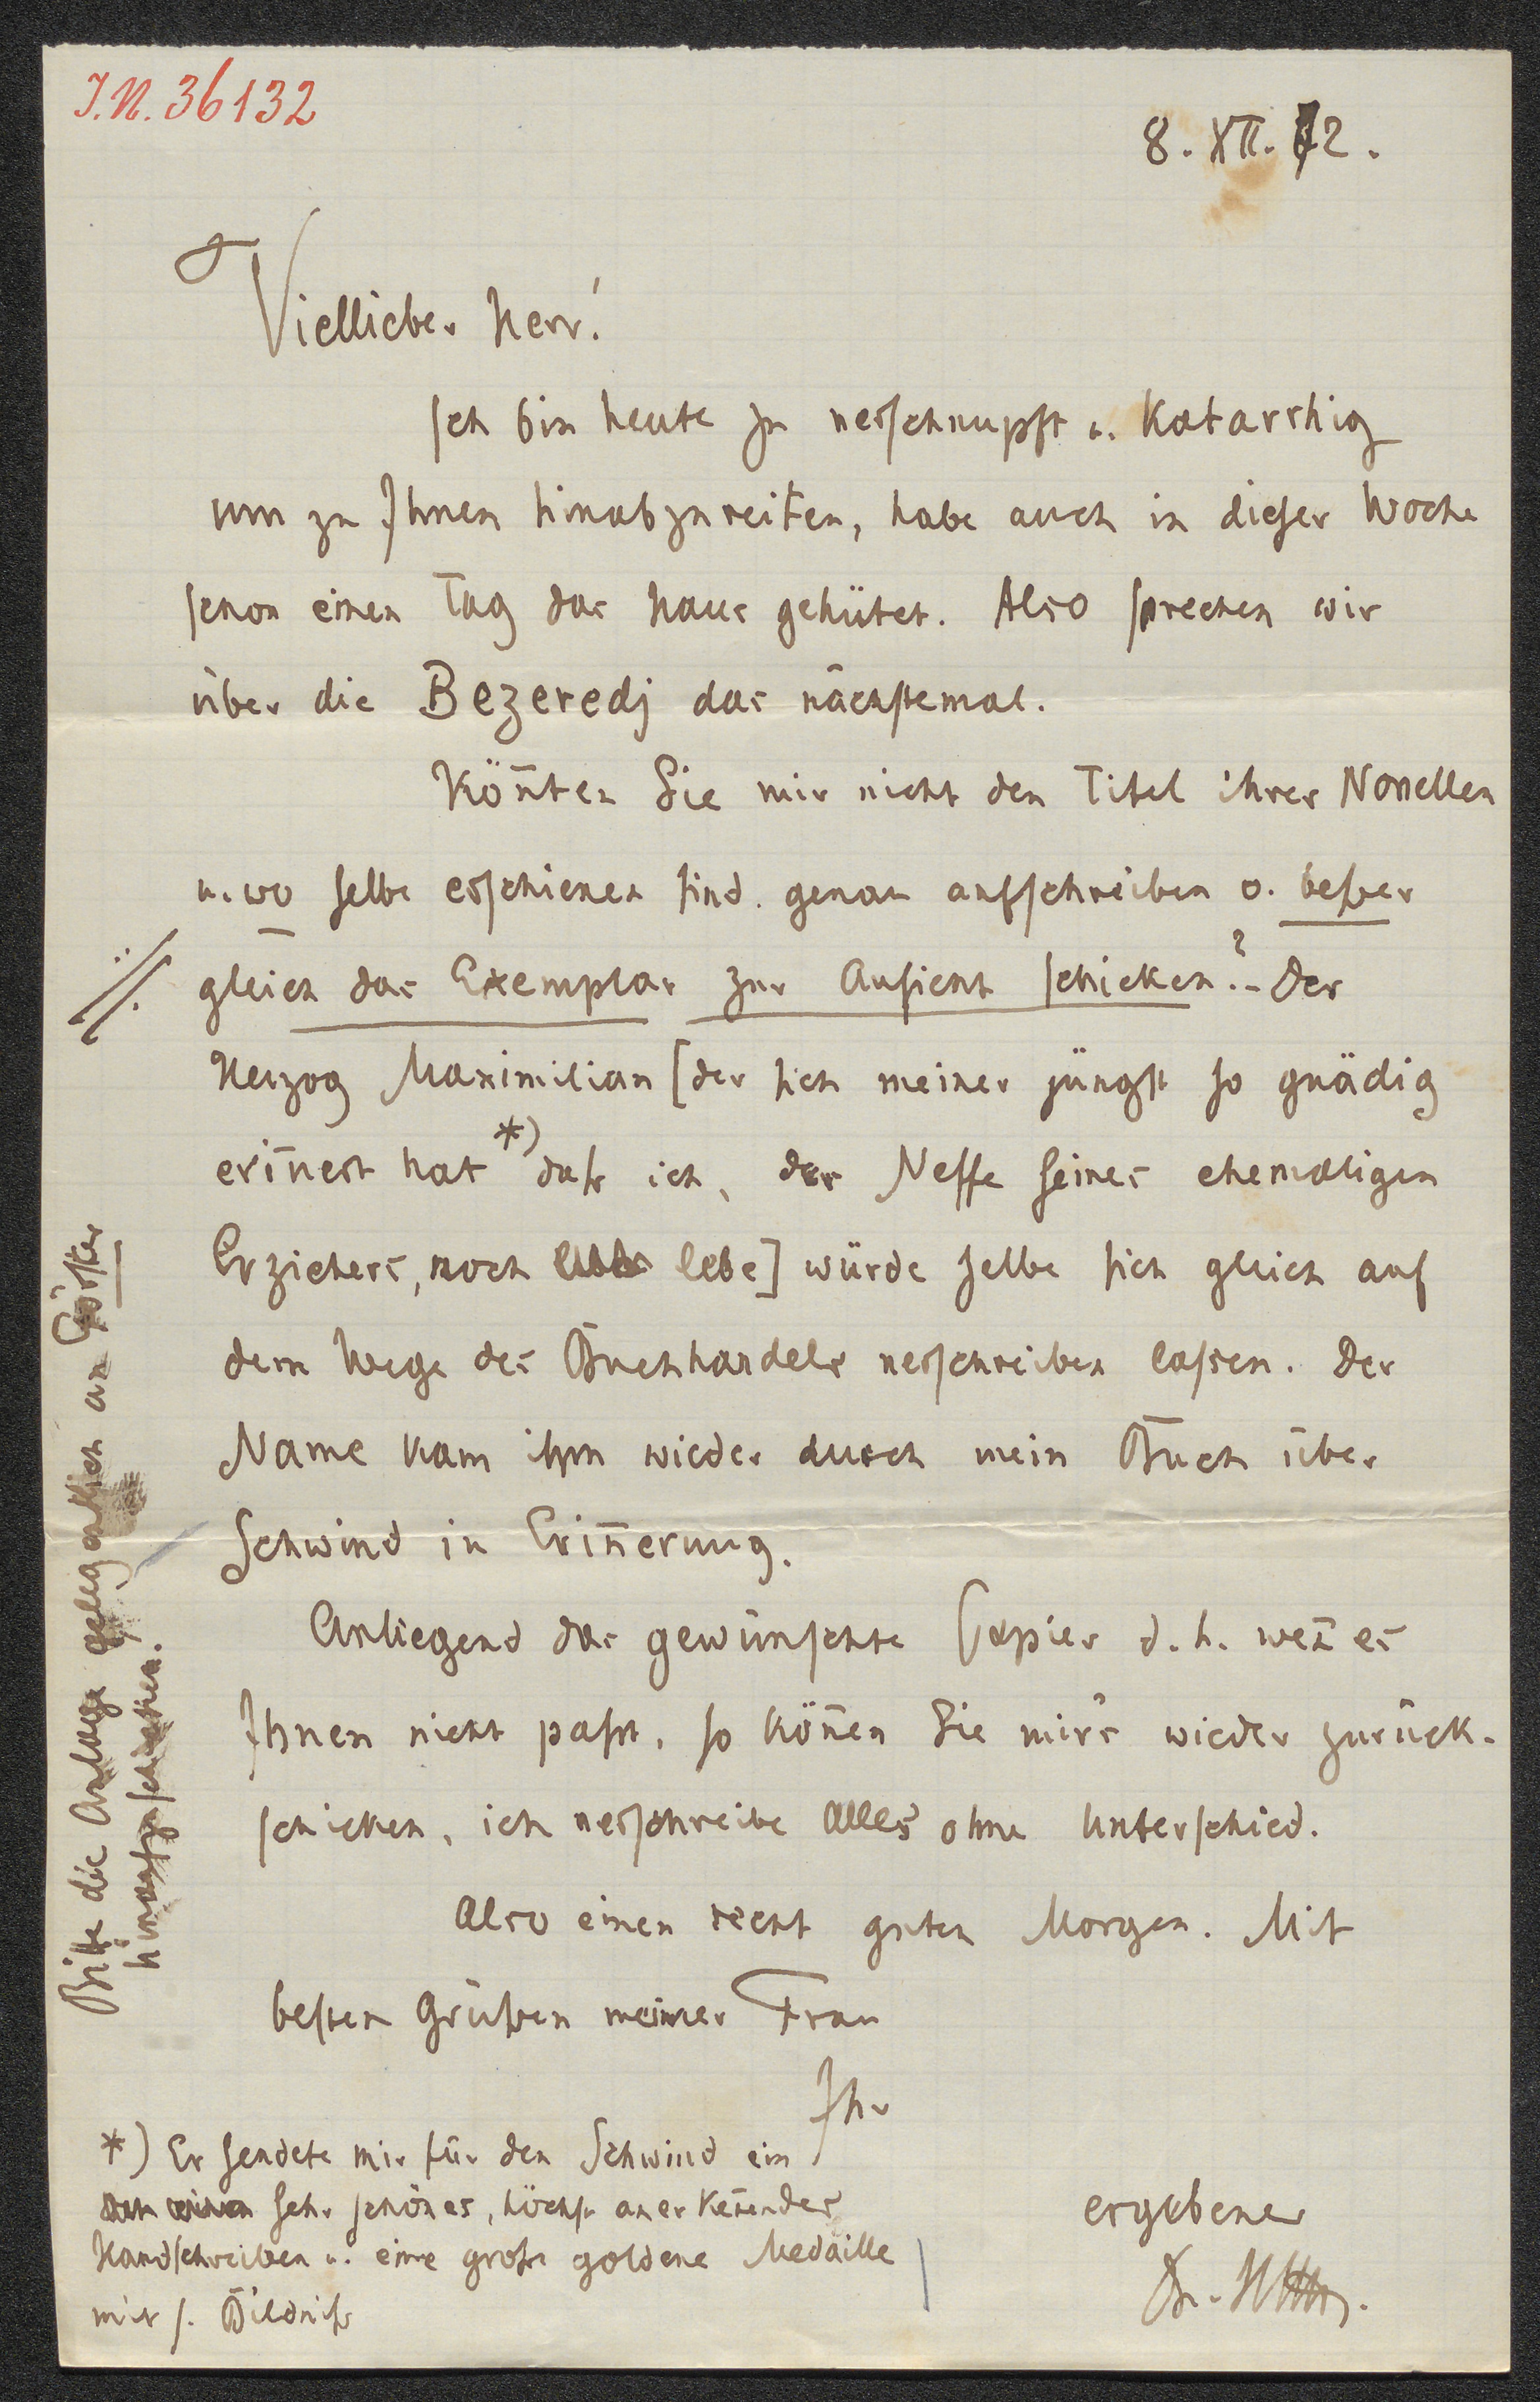 J. N. 36132
8. XII. 72.
Viellieber Herr!
Ich bin heute zu verschnupft u. katarrhig
um zu Ihnen hinabzureiten, habe auch in dieser Woche
schon einen Tag das Haus gehütet. Also sprechen wir
über die Bezeredj das nächstemal.
Könnten Sie mir nicht den Titel ihrer Novellen
u. wo selbe erschienen sind genau aufschreiben o. beßer
gleich das Exemplar zur Ansicht schicken? – Der
Herzog Maximilian [der sich meiner jüngst so gnädig
erinnert hat *) daß ich, der Neffe seines ehemaligen
Erziehers, noch lebe] würde selbe sich gleich auf
dem Wege des Buchhandels verschreiben laßen. Der
Name kam ihm wieder durch mein Buch über
Schwind in Erinnerung.
Anliegend das gewünschte Papier d. h. wenn es
Ihnen nicht paßt, so können Sie mir's wieder zurück-
schicken, ich verschreibe alles ohne Unterschied.
Also einen recht guten Morgen. Mit
besten Grüßen meiner Frau
Ihr
ergebener
Dr. H
*) Er sendete mir für den Schwind ein
sehr schönes, höchst anerkennendes
Handschreiben u. eine große goldene Medaille
mit s. Bildniß
Bitte die Anlage gelegentlich an Förster
hinaufzuschicken.